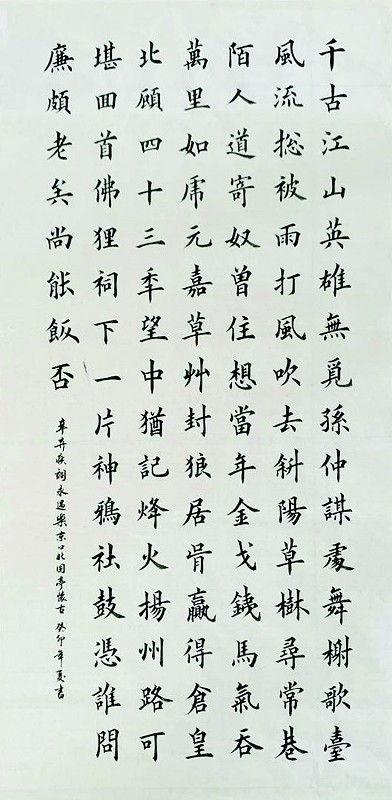 千古江山英雄無覓孫仲謀處舞榭歌臺
風流総被雨打風吹去斜陽草樹尋常巷
陌人道寄奴曾住想當年金戈鐵馬氣吞
萬里如虎元嘉草艸封狼居胥贏得倉皇
北頋四十三秊望中猶記烽火揚州路可
堪囬首佛狸祠下一片神鴉社鼓憑誰問
廉頗老矣尚能飯否
辛弃疾詞永遇樂京口北固亭懷古 癸卯年夏書